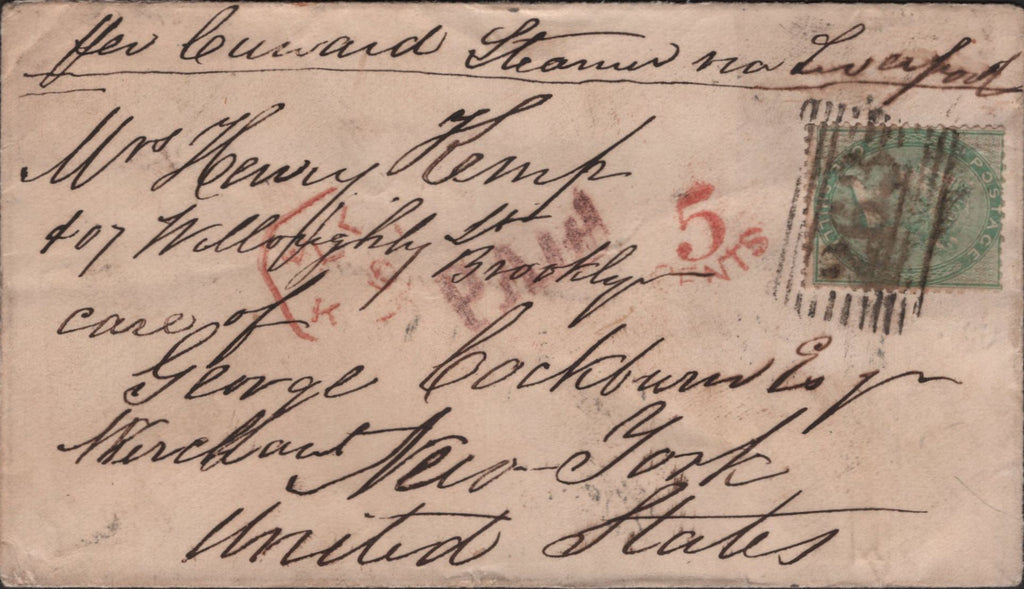 Per Cunard Steamer via Liverpool
Mrs Henry Kemp
407 Willoughby St
Brooklyn
care of
George Cockburn Esqr
Merchant New-York
United States
PAID
5
CENTS
POSTAGE